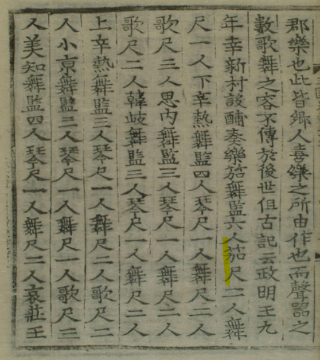 郡樂也此皆鄕人喜樂之所由作也而聲器之
數歌舞之容不傳於後世但古記云政明王九
年幸新村設酺奏樂笳舞監六人笳尺二人舞
尺一人下辛熱舞監四人琴尺一人舞尺二人
歌尺三人思内舞監三人琴尺一人舞尺二人
歌尺二人韓歧舞監三人琴尺一人舞尺二人
上辛熱舞監三人琴尺一人舞尺二人歌尺二
人小京舞監三人琴尺一人舞尺一人歌尺三
人美知舞監四人琴尺一人舞尺二人哀莊王